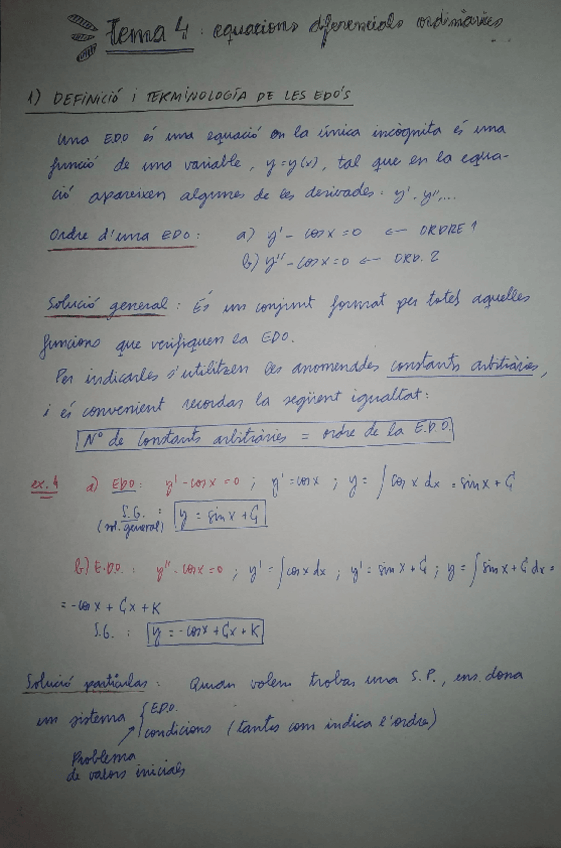 Tema 4: equacions diferencials ordinàries
1) DEFINICIÓ i TERMINOLOGÍA DE LES EDO'S
Una EDO és una equació on la única incògnita és una
funció de una variable, y=y(x), tal que en la equa-
ció apareixen algunes de les derivades: y', y'',...
Ordre d'una EDO: a) y' - cosx = 0 ← ORDRE 1
b) y'' - cosx = 0 ← ORD. 2
Solució general: És un conjunt format per totes aquelles
funcions que verifiquen la EDO.
Per indicarles s'utilitzen les anomenades constants arbitràries,
i és convenient recordar la següent igualtat:
Nº de constants arbitràries = ordre de la E.D.O.
ex. 1 a) EDO: y' - cosx = 0 ; y' = cosx ; y = ∫ cosx dx = sinx + C
S.G. : y = sinx + C
(sol. general)
b) E.D.O.: y'' - cosx = 0 ; y' = ∫ cosx dx ; y' = sinx + C ; y = ∫ sinx + C dx =
= -cosx + Cx + K
S.G. : y = -cosx + Cx + K
Solució particular: Quan volem trobar una S.P., ens dona
un sistema { E.D.O.
condicions (tantes com indica l'ordre)
Problema
de valors inicials